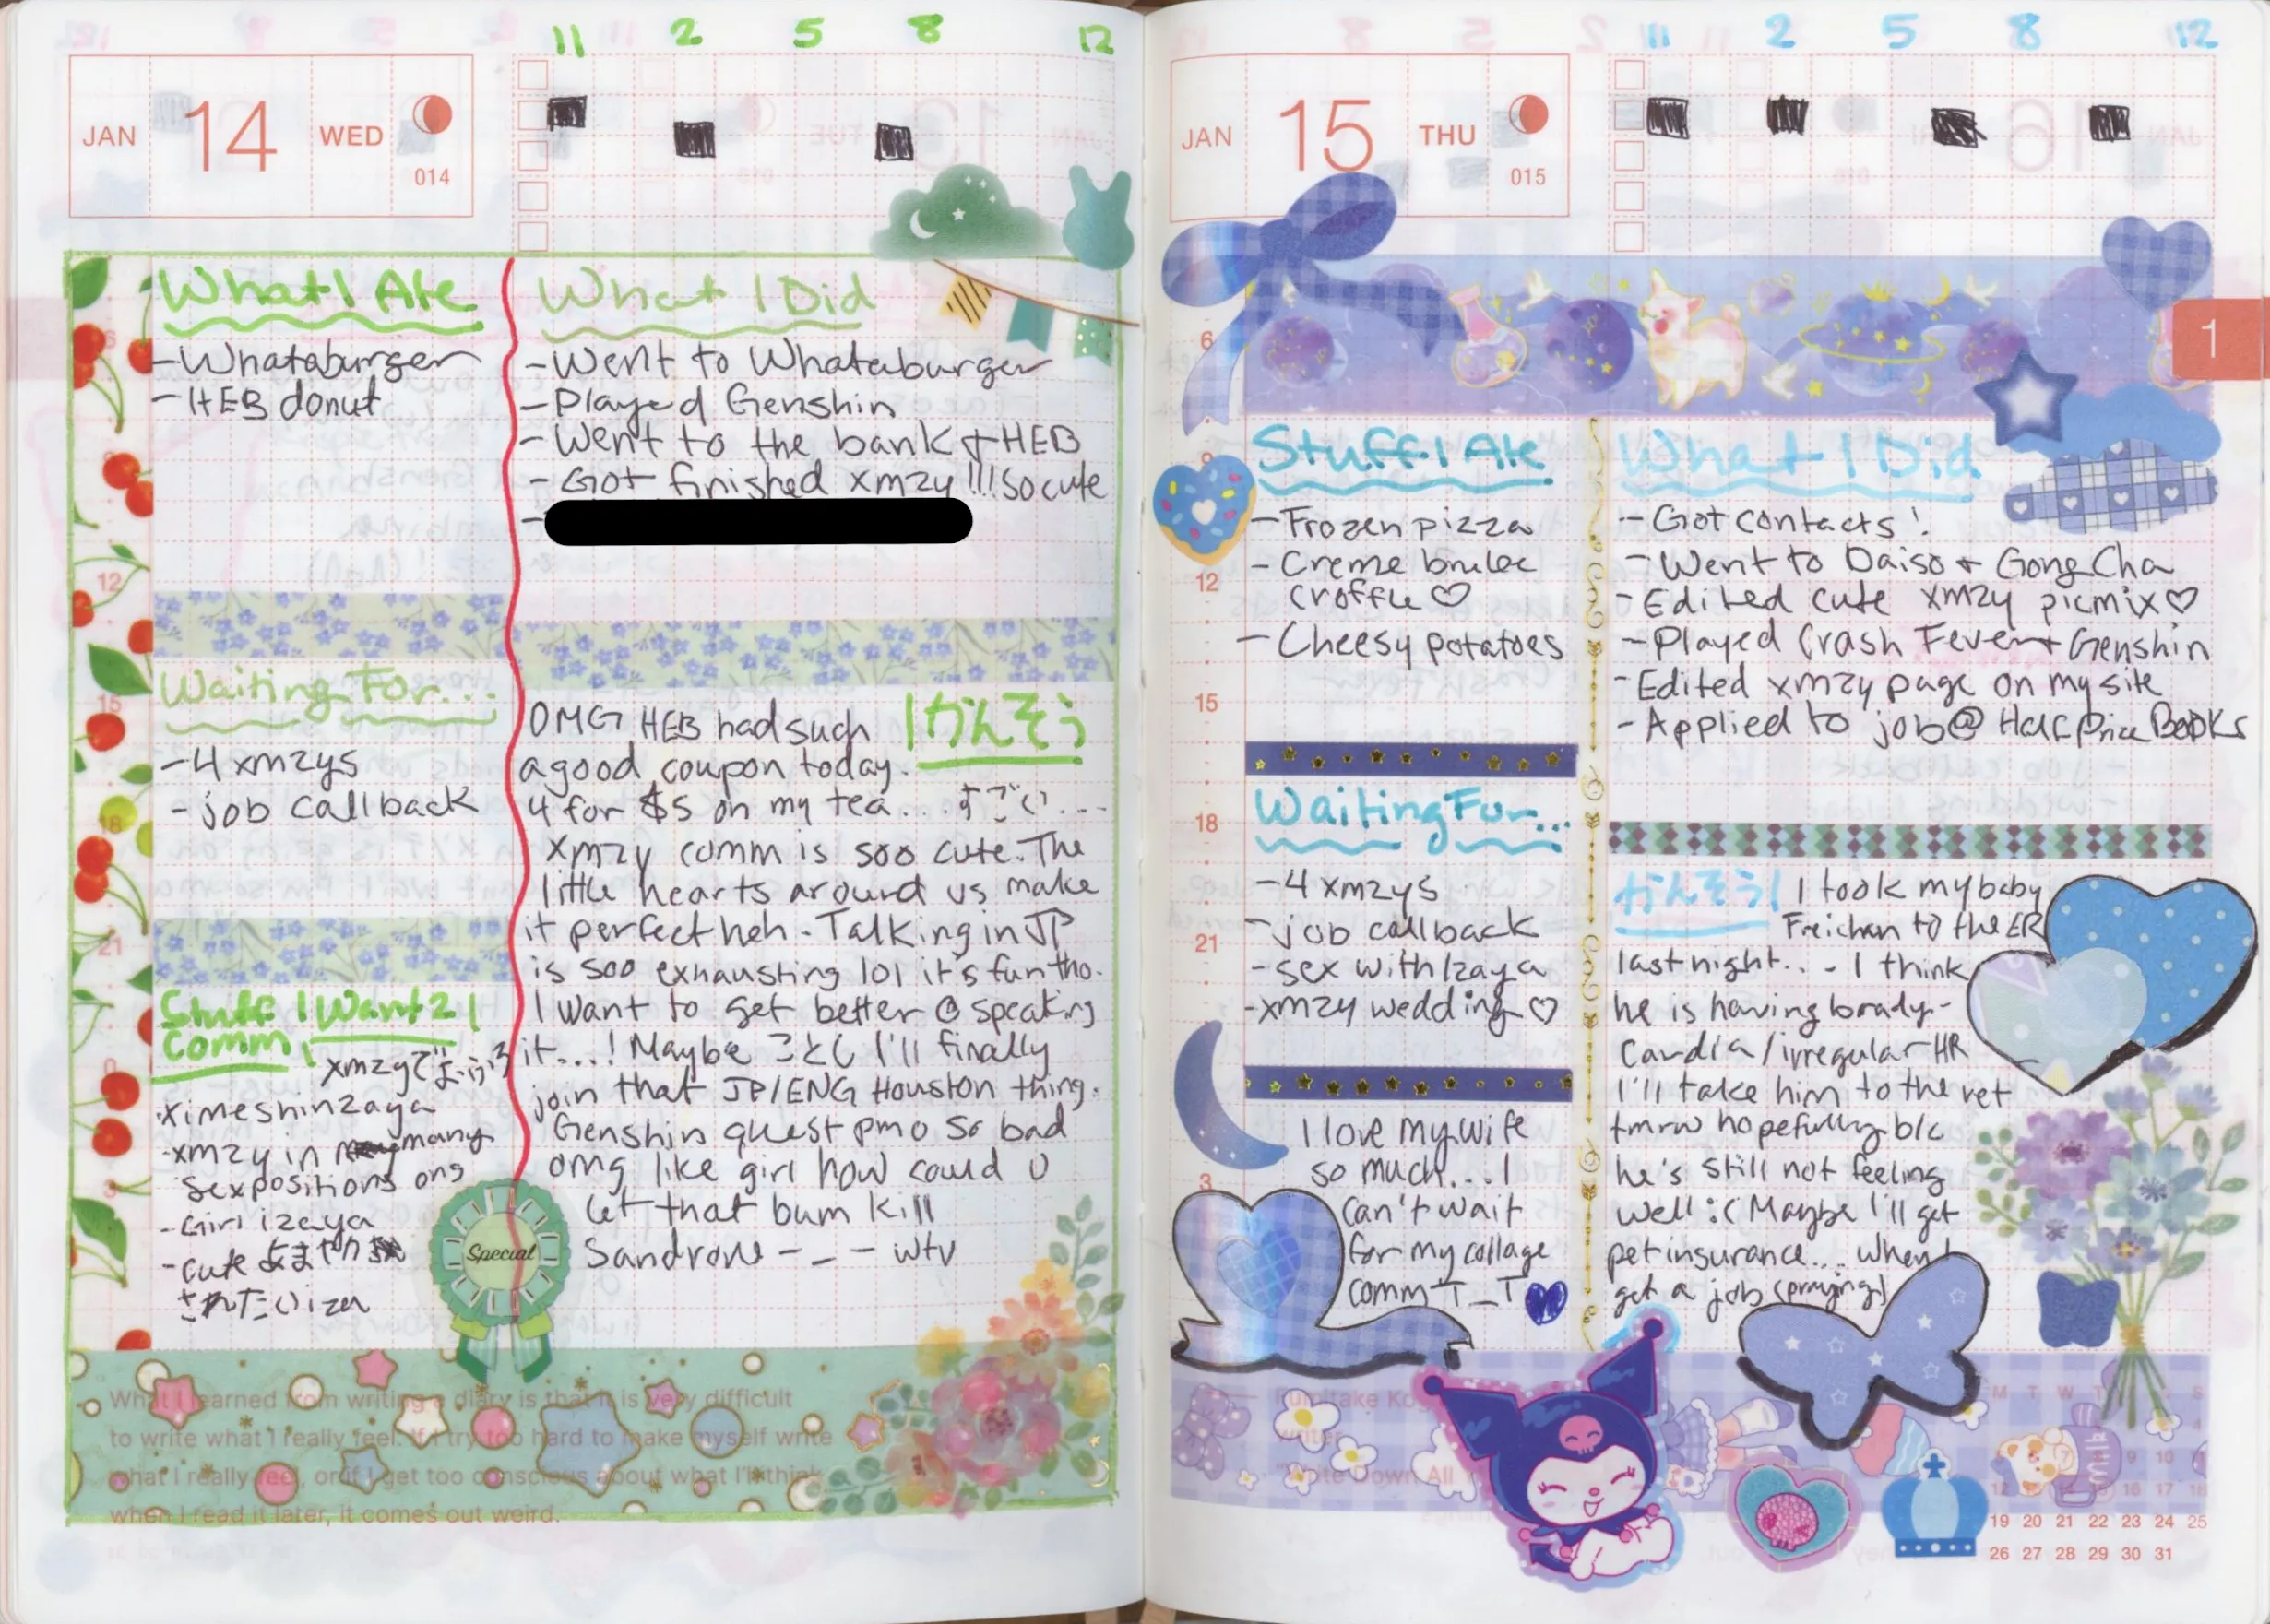 11 2 5 8 12
JAN 14 WED
014
What I Ate
-Whataburger
-HEB donut
Waiting For...
-4 xmzys
-job callback
Stuff I Want 2
comm!
ximeshinzaya
-xmzy in many
sex positions ong
-Girl izaya
-cute
What I Did
-Went to Whataburger
-Played Genshin
-Went to the bank + HEB
-Got finished xmzy!!! So cute
-
かんそう
OMG HEB had such
a good coupon today.
4 for $5 on my tea... すごい...
xmzy comm is soo cute. The
little hearts around us make
it perfect heh. Talking in JP
is soo exhausting lol it's fun tho.
I want to get better @ speaking
it...! Maybe ことし I'll finally
join that JP/ENG Houston thing.
Genshin quest pmo so bad
omg like girl how could u
let that bum kill
Sandrone -_- wtv
Special
What I learned from writing a diary is that it is very difficult
to write what I really feel. If I try too hard to make myself write
what I really feel, or if I get too conscious about what I'll think
when I read it later, it comes out weird.
11 2 5 8 12
JAN 15 THU
015
1
Stuff I Ate
-Frozen pizza
-Creme brulee
croffle ♡
-Cheesy potatoes
Waiting For...
-4 xmzys
-job callback
-sex with Izaya
-xmzy wedding ♡
I love my wife
so much... I
can't wait
for my collage
comm T_T
What I Did
-Got contacts!
-Went to Daiso + Gong Cha
-Edited cute xmzy picmix ♡
-Played Crash Fever + Genshin
-Edited xmzy page on my site
-Applied to job @ Half Price Books
かんそう! I took my baby
Freichan to the ER
last night... I think
he is having brady-
cardia/irregular HR
I'll take him to the vet
tmrw hopefully b/c
he's still not feeling
well :( Maybe I'll get
pet insurance... when I
get a job (praying)
milk
19 20 21 22 23 24 25
26 27 28 29 30 31
6
9
12
15
18
21
3